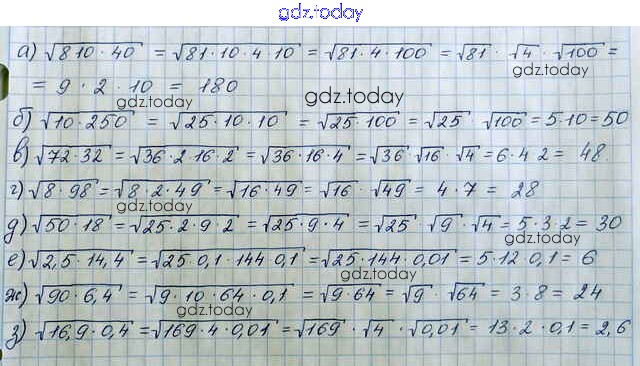 gdz.today
а) √810·40 = √81·10·4·10 = √81·4·100 = √81 · √4 · √100 =
= 9 · 2 · 10 = 180
gdz.today
gdz.today
б) √10·250 = √25·10·10 = √25·100 = √25 · √100 = 5·10 = 50
в) √72·32 = √36·2·16·2 = √36·16·4 = √36 √16 · √4 = 6·4 2 = 48.
г) √8·98 = √8·2·49 = √16·49 = √16 · √49 = 4·7 = 28
gdz.today
д) √50·18 = √25·2·9·2 = √25·9·4 = √25 · √9 · √4 = 5·3·2 = 30
gdz.today
е) √2,5·14,4 = √25·0,1·144·0,1 = √25·144·0,01 = 5·12·0,1 = 6
gdz.today
ж) √90·6,4 = √9·10·64·0,1 = √9·64 = √9 · √64 = 3·8 = 24
gdz.today
з) √16,9·0,4 = √169·4·0,01 = √169 · √4 · √0,01 = 13·2·0,1 = 2,6
gdz.today